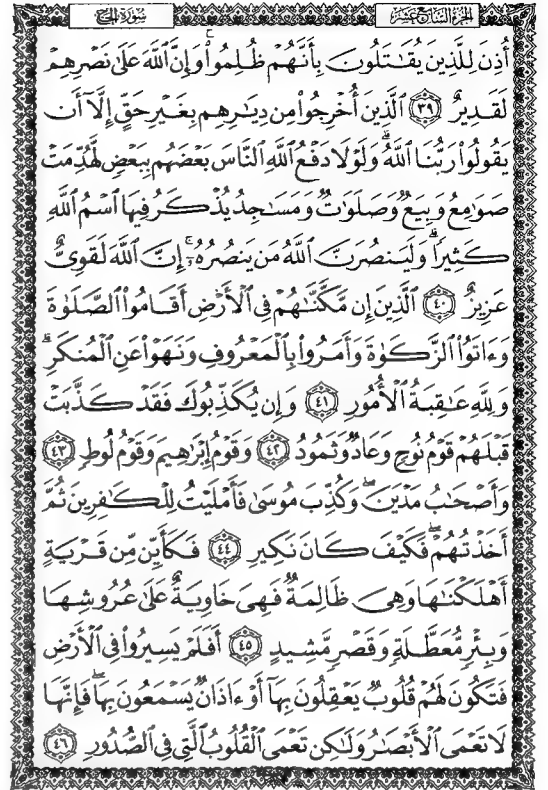 سُورَةُ الحَجّ
الجزءُ السَّابِعَ عَشَرَ
أُذِنَ لِلَّذِينَ يُقَٰتَلُونَ بِأَنَّهُمْ ظُلِمُوا۟ ۚ وَإِنَّ ٱللَّهَ عَلَىٰ نَصْرِهِمْ
لَقَدِيرٌ ﴿٣٩﴾ ٱلَّذِينَ أُخْرِجُوا۟ مِن دِيَٰرِهِم بِغَيْرِ حَقٍّ إِلَّآ أَن
يَقُولُوا۟ رَبُّنَا ٱللَّهُ ۗ وَلَوْلَا دَفْعُ ٱللَّهِ ٱلنَّاسَ بَعْضَهُم بِبَعْضٍ لَّهُدِّمَتْ
صَوَٰمِعُ وَبِيَعٌ وَصَلَوَٰتٌ وَمَسَٰجِدُ يُذْكَرُ فِيهَا ٱسْمُ ٱللَّهِ
كَثِيرًا ۗ وَلَيَنصُرَنَّ ٱللَّهُ مَن يَنصُرُهُۥٓ ۗ إِنَّ ٱللَّهَ لَقَوِىٌّ
عَزِيزٌ ﴿٤٠﴾ ٱلَّذِينَ إِن مَّكَّنَّٰهُمْ فِى ٱلْأَرْضِ أَقَامُوا۟ ٱلصَّلَوٰةَ
وَءَاتَوُا۟ ٱلزَّكَوٰةَ وَأَمَرُوا۟ بِٱلْمَعْرُوفِ وَنَهَوْا۟ عَنِ ٱلْمُنكَرِ ۗ
وَلِلَّهِ عَٰقِبَةُ ٱلْأُمُورِ ﴿٤١﴾ وَإِن يُكَذِّبُوكَ فَقَدْ كَذَّبَتْ
قَبْلَهُمْ قَوْمُ نُوحٍ وَعَادٌ وَثَمُودُ ﴿٤٢﴾ وَقَوْمُ إِبْرَٰهِيمَ وَقَوْمُ لُوطٍ ﴿٤٣﴾
وَأَصْحَٰبُ مَدْيَنَ ۖ وَكُذِّبَ مُوسَىٰ فَأَمْلَيْتُ لِلْكَٰفِرِينَ ثُمَّ
أَخَذْتُهُمْ ۖ فَكَيْفَ كَانَ نَكِيرِ ﴿٤٤﴾ فَكَأَيِّن مِّن قَرْيَةٍ
أَهْلَكْنَٰهَا وَهِىَ ظَالِمَةٌ فَهِىَ خَاوِيَةٌ عَلَىٰ عُرُوشِهَا
وَبِئْرٍ مُّعَطَّلَةٍ وَقَصْرٍ مَّشِيدٍ ﴿٤٥﴾ أَفَلَمْ يَسِيرُوا۟ فِى ٱلْأَرْضِ
فَتَكُونَ لَهُمْ قُلُوبٌ يَعْقِلُونَ بِهَآ أَوْ ءَاذَانٌ يَسْمَعُونَ بِهَا ۖ فَإِنَّهَا
لَا تَعْمَى ٱلْأَبْصَٰرُ وَلَٰكِن تَعْمَى ٱلْقُلُوبُ ٱلَّتِى فِى ٱلصُّدُورِ ﴿٤٦﴾